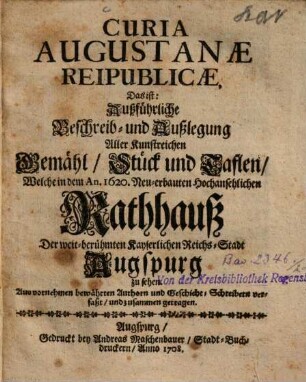 CURIA
AUGUSTANÆ
REIPUBLICÆ,
Das ist:
Außführliche
Beschreib- und Außlegung
Aller Kunstreichen
Gemähl / Stück und Taflen /
Welche in dem An. 1620. Neu-erbauten Hochansehlichen
Rathhauß
Der weit-berühmten Kayserlichen Reichs-Stadt
Augspurg
zu sehen
Von der Kreisbibliothek Regens
Auß vornehmen bewährten Authorn und Geschicht-Schreibern ver-
fasst / und zusammen getragen.
Augspurg /
Gedruckt bey Andreas Maschenbauer / Stadt-Buch-
druckern / Anno 1708.